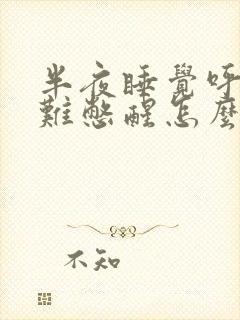 半夜睡覺呼
難憋醒怎麼
不知